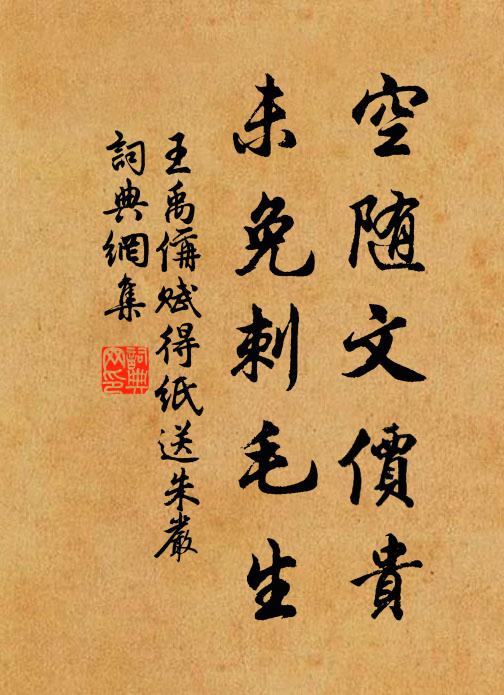 空随文價貴
未免刺毛生
王禹偁賦得紙送朱嚴
詞典網集
詞典网印